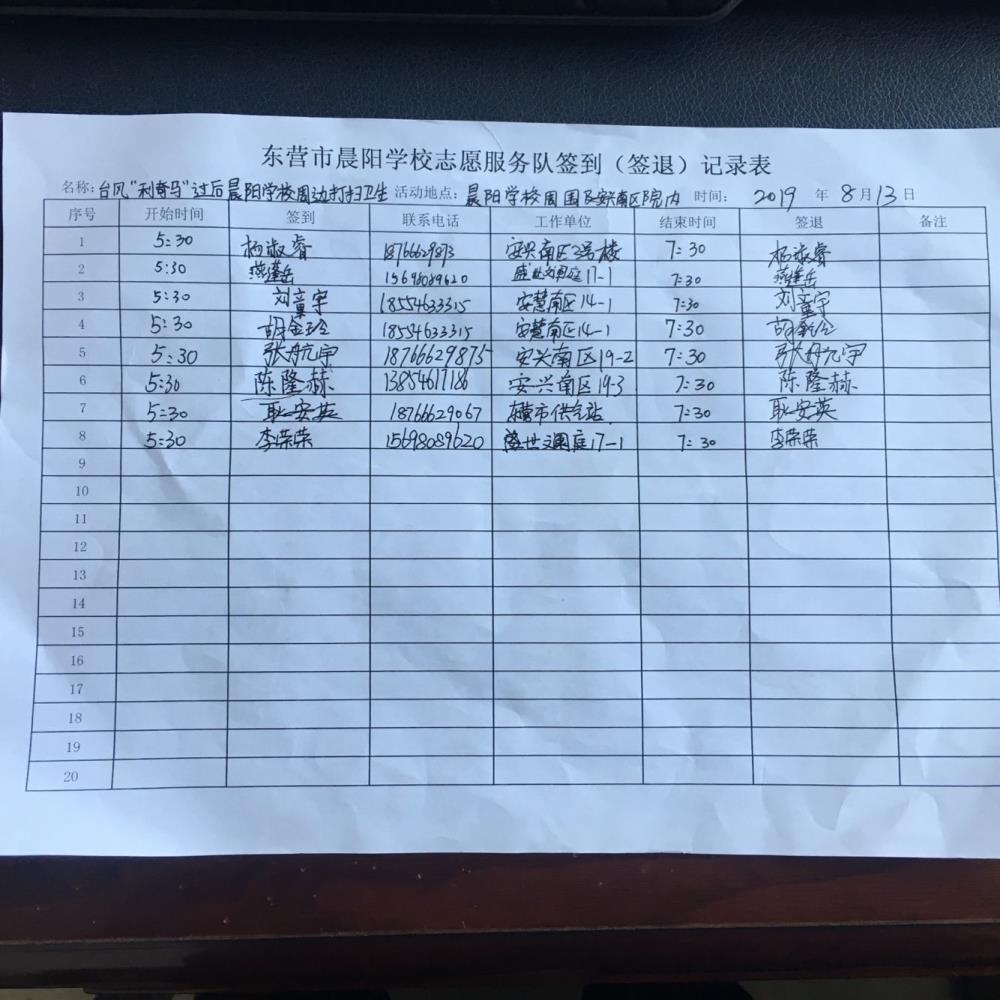 东营市晨阳学校志愿服务队签到（签退）记录表
名称：台风"利奇马"过后晨阳学校周边打扫卫生 活动地点：晨阳学校周围及安兴南区院内 时间： 2019 年 8 月 13 日
序号 开始时间 签到 联系电话 工作单位 结束时间 签退 备注
1 5:30 杨淑睿 18766629873 安兴南区3号楼 7:30 杨淑睿
2 5:30 燕瑾岳 15698089620 盛世文景庭17-1 7:30 燕瑾岳
3 5:30 刘童宇 18554633315 安慧南区14-1 7:30 刘童宇
4 5:30 胡金玲 18554633315 安慧南区14-1 7:30 胡金玲
5 5:30 张舟亢宇 18766629875 安兴南区19-2 7:30 张舟亢宇
6 5:30 陈隆赫 13854617186 安兴南区19-3 7:30 陈隆赫
7 5:30 耿安英 18766629067 东营市供气站 7:30 耿安英
8 5:30 李荣荣 15698089620 盛世 庭17-1 7:30 李荣荣
9
10
11
12
13
14
15
16
17
18
19
20